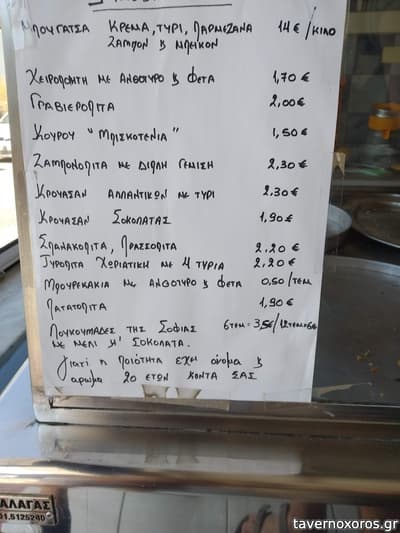 ΜΠΟΥΓΑΤΣΑ ΚΡΕΜΑ, ΤΥΡΙ, ΠΑΡΜΕΖΑΝΑ 14€/ΚΙΛΟ
ΖΑΜΠΟΝ & ΜΠΕΙΚΟΝ
ΧΕΙΡΟΠΟΙΗΤΗ ΜΕ ΑΝΘΟΤΥΡΟ & ΦΕΤΑ 1,70€
ΓΡΑΒΙΕΡΟΠΙΤΑ 2,00€
ΚΟΥΡΟΥ "ΜΠΙΣΚΟΤΕΝΙΑ" 1,50€
ΖΑΜΠΟΝΟΠΙΤΑ ΜΕ ΔΙΠΛΗ ΓΕΜΙΣΗ 2,30€
ΚΡΟΥΑΣΑΝ ΑΛΛΑΝΤΙΚΩΝ ΜΕ ΤΥΡΙ 2,30€
ΚΡΟΥΑΣΑΝ ΣΟΚΟΛΑΤΑΣ 1,90€
ΣΠΑΝΑΚΟΠΙΤΑ, ΠΡΑΣΣΟΠΙΤΑ 2,20€
ΤΥΡΟΠΙΤΑ ΧΩΡΙΑΤΙΚΗ ΜΕ 4 ΤΥΡΙΑ 2,20€
ΜΠΟΥΡΕΚΑΚΙΑ ΜΕ ΑΝΘΟΤΥΡΟ & ΦΕΤΑ 0,50/ΤΕΜ
ΠΑΤΑΤΟΠΙΤΑ 1,90€
ΛΟΥΚΟΥΜΑΔΕΣ ΤΗΣ ΣΟΦΙΑΣ 6ΤΕΜ=3,5€/12ΤΕΜ=6€
ΜΕ ΜΕΛΙ Η' ΣΟΚΟΛΑΤΑ.
Γιατί η ΠΟΙΟΤΗΤΑ ΕΧΕΙ όνομα &
άρωμα 20 ΕΤΩΝ ΚΟΝΤΑ ΣΑΣ
ΑΛΑΓΑΣ
01.5125240
tavernoxoros.gr